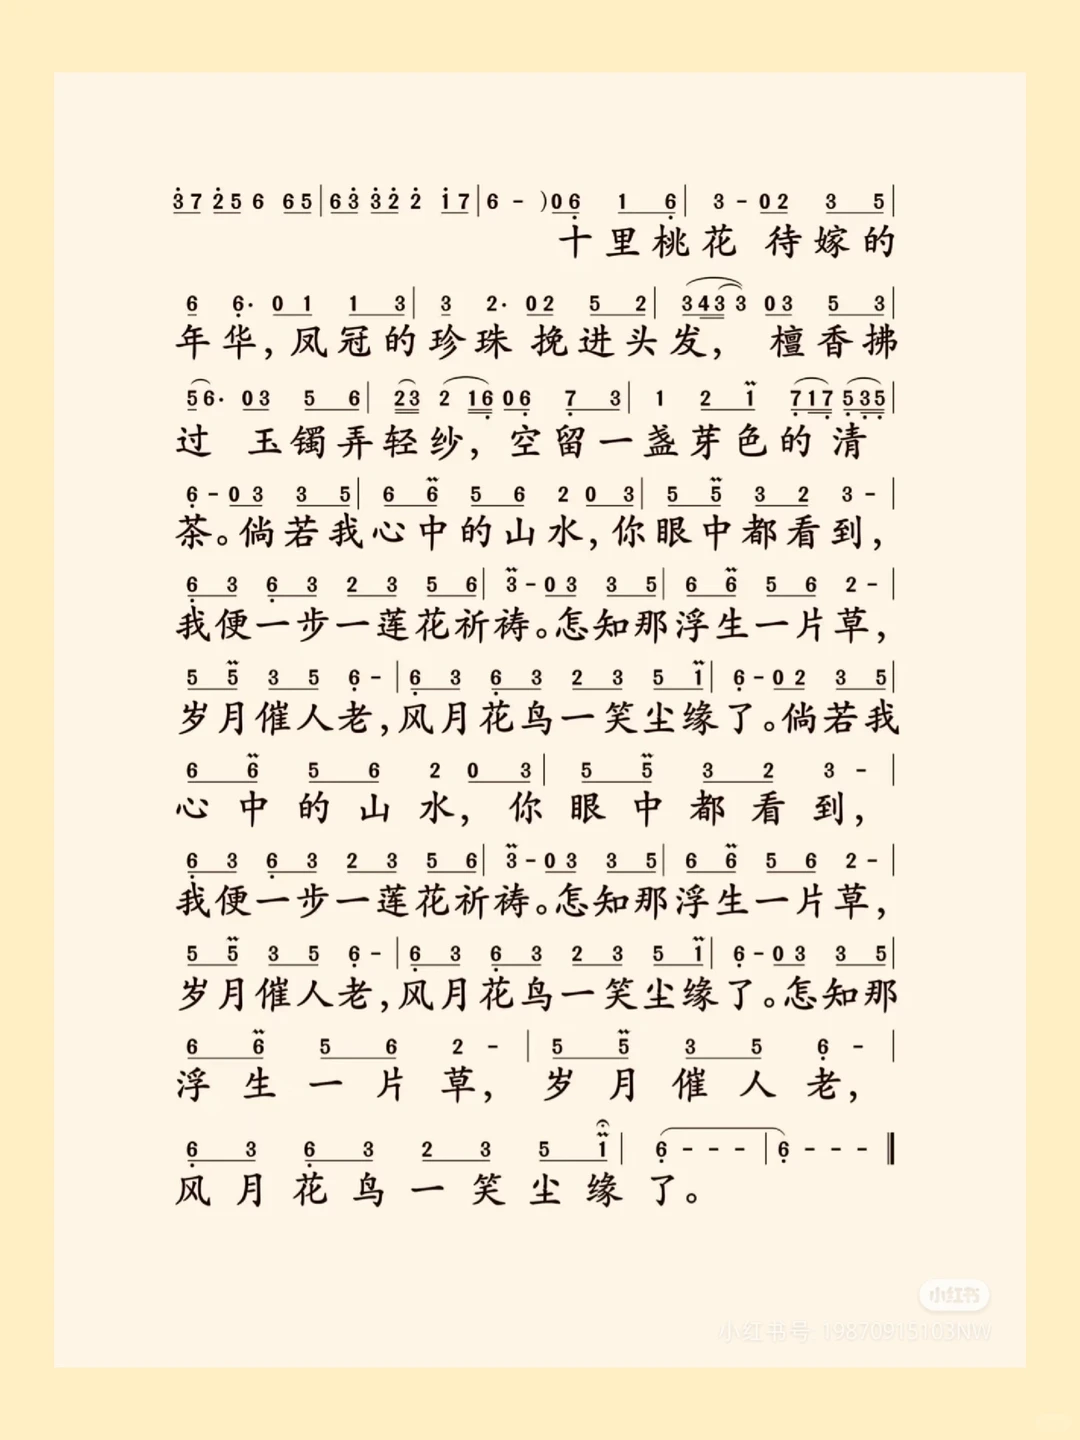 3̇7 2̇5 6 65|63̇ 3̇2̇ 2̇ 1̇7|6 - )06̣ 1 6̣| 3 - 02 3 5|
十里桃花 待嫁的
6 6̣· 01 1 3| 3 2· 02 5 2| 3433 03 5 3|
年华,凤冠的珍珠 挽进头发, 檀香拂
56· 03 5 6| 23 2 16̣ 06̣ 7̣ 3| 1 2 1 7̣17̣ 5̣3̣5̣|
过 玉镯弄轻纱,空留一盏芽色的 清
6̣ - 03 3 5| 6 6 5 6 2 0 3| 5 5 3 2 3 - |
茶。倘若我心中的山水,你眼中都看到,
6̣ 3 6̣ 3 2 3 5 6| 3 - 03 3 5| 6 6 5 6 2 - |
我便一步一莲花祈祷。怎知那浮生一片草,
5 5 3 5 6̣ - |6̣ 3 6̣ 3 2 3 5 1| 6̣ - 02 3 5|
岁月催人老,风月花鸟一笑尘缘了。倘若我
6 6 5 6 2 0 3| 5 5 3 2 3 - |
心中的山水,你眼中都看到,
6̣ 3 6̣ 3 2 3 5 6| 3 - 03 3 5| 6 6 5 6 2 - |
我便一步一莲花祈祷。怎知那浮生一片草,
5 5 3 5 6̣ - |6̣ 3 6̣ 3 2 3 5 1| 6̣ - 03 3 5|
岁月催人老,风月花鸟一笑尘缘了。怎知那
6 6 5 6 2 - | 5 5 3 5 6̣ - |
浮生一片草,岁月催人老,
6̣ 3 6̣ 3 2 3 5 1| 6̣ - - - |6̣ - - - ‖
风月花鸟一笑尘缘了。
小红书
小红书号 19870915103NW